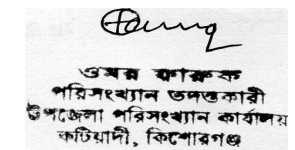 ওমর ফারুক
পরিসংখ্যান তদন্তকারী
উপজেলা পরিসংখ্যান কার্যালয়
কটিয়াদী, কিশোরগঞ্জ